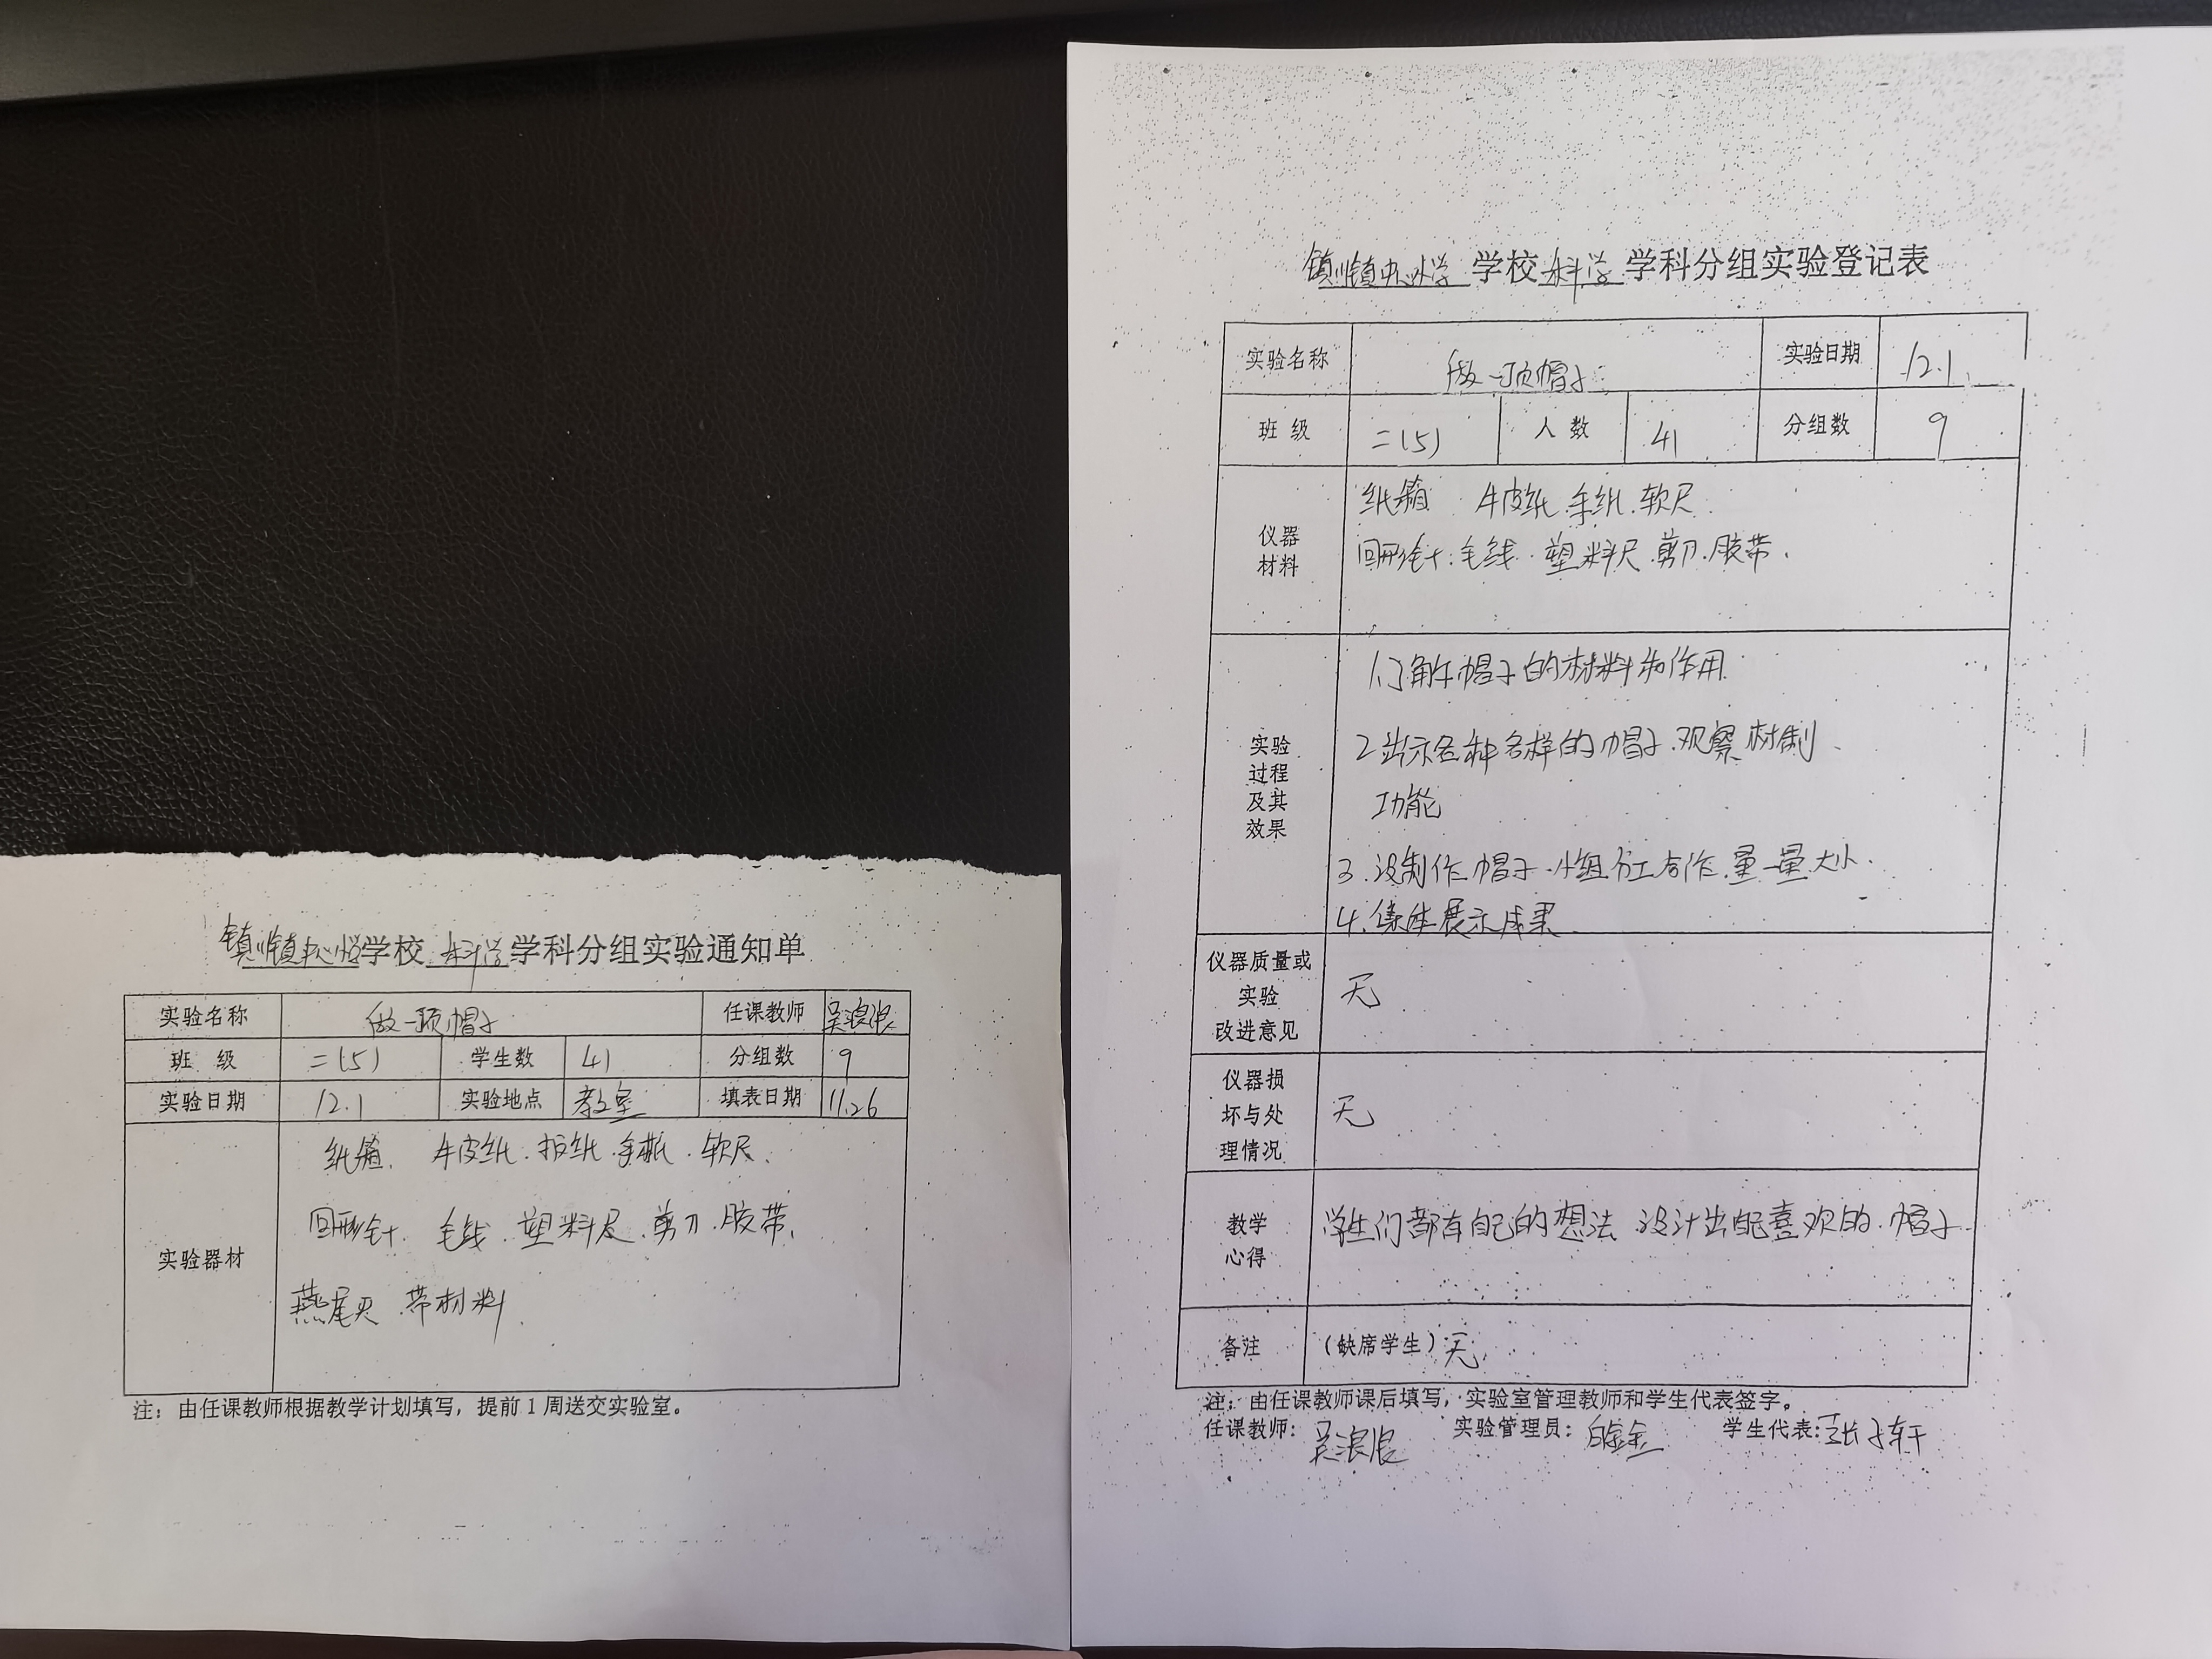 学校科学学科分组实验通知单
实验名称 做一顶帽子 任课教师 吴浪浪
班 级 二(5) 学生数 41 分组数 9
实验日期 12.1 实验地点 教室 填表日期 11.26
实验器材
纸箱. 牛皮纸.报纸.手纸.软尺.
回形针.毛线.塑料尺.剪刀.胶带.
燕尾夹.带材料.
注：由任课教师根据教学计划填写，提前1周送交实验室。
学校科学学科分组实验登记表
实验名称 做一顶帽子 实验日期 12.1
班 级 二(5) 人 数 41 分组数 9
仪器
材料
纸箱 牛皮纸.手纸.软尺.
回形针.毛线.塑料尺.剪刀.胶带.
实验
过程
及其
效果
1.了解帽子的材料和作用
2出示各种各样的帽子.观察材制
功能
3.设制作帽子.小组分工合作.量一量大小.
4.集体展示成果
仪器质量或
实验
改进意见
无
仪器损
坏与处
理情况
无
教学
心得
学生们都有自己的想法 设计出喜欢的.帽子.
备注 (缺席学生)无.
注：由任课教师课后填写，实验室管理教师和学生代表签字。
任课教师：吴浪浪 实验管理员： 学生代表:张子轩